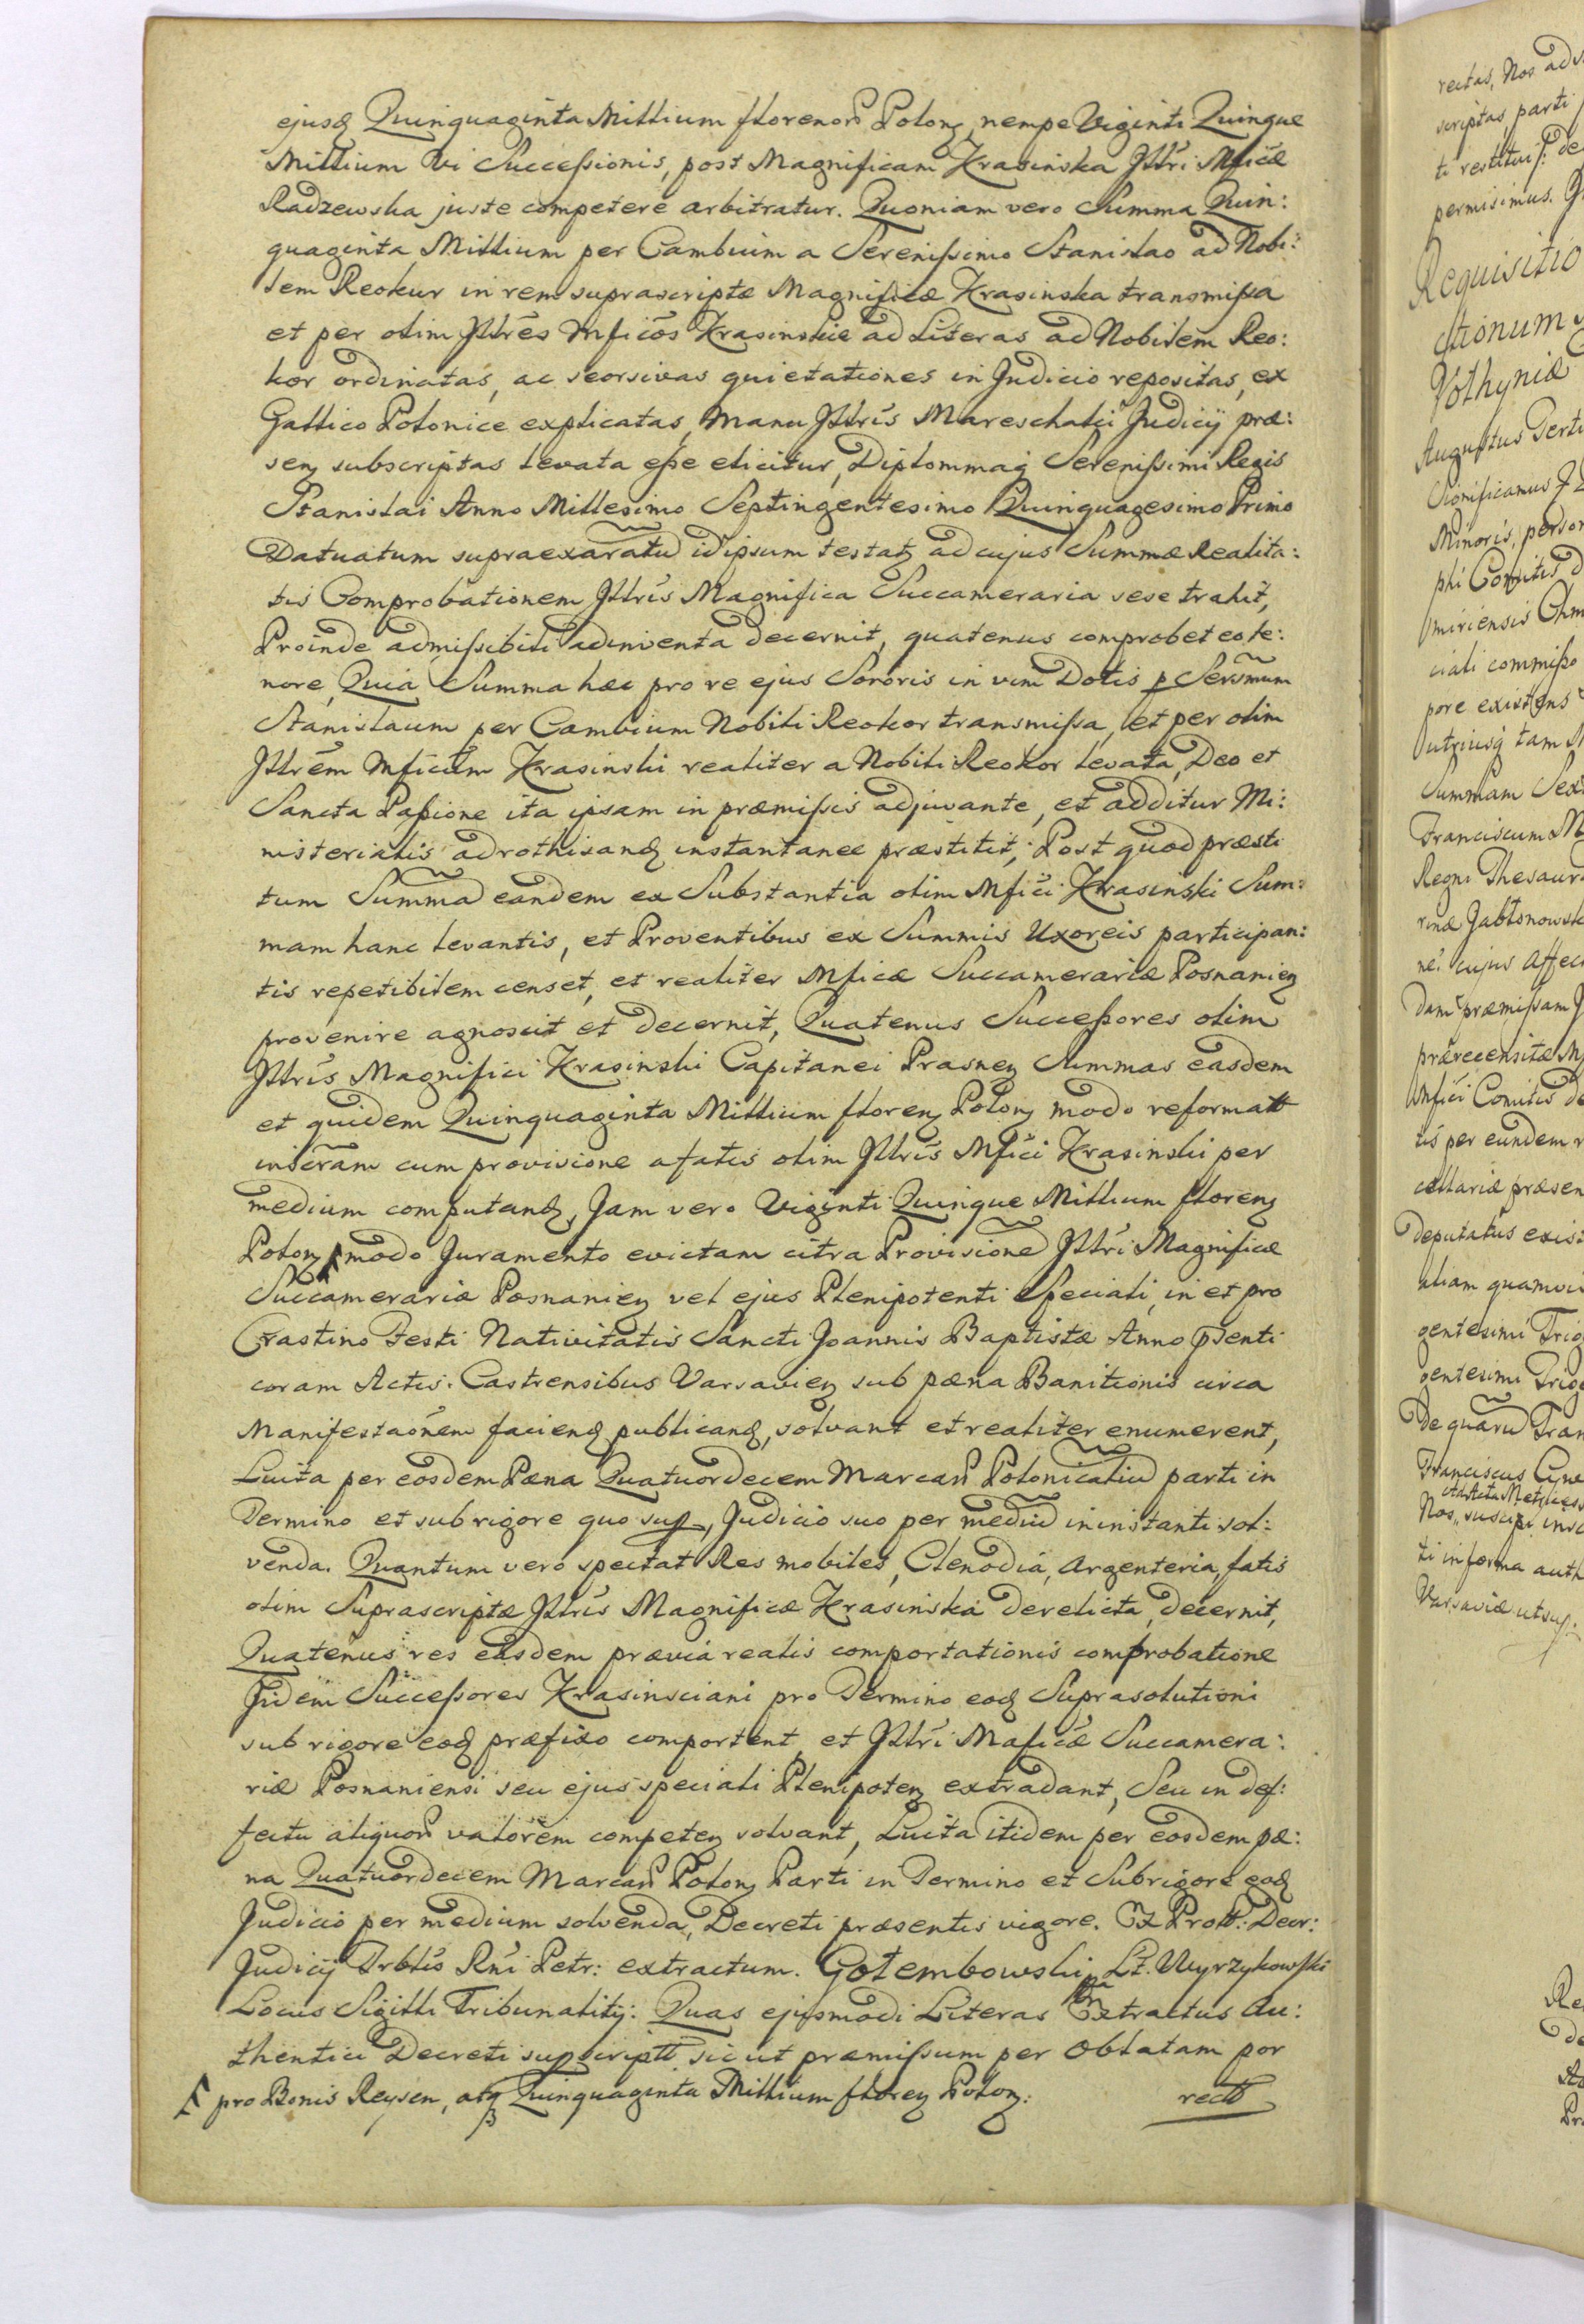 ejusq Quinquaginta Millium florenor Polon, nempe Viginti Quinque
Millium vi Successionis, post Magnificam Krasinska Jllri Mficæ
Radzewska juste competere arbitratur. Quoniam vero Summa Quin:
quaginta Millium per Cambium a Serenissimo Stanislao ad Nobi:
lem Reokur in rem suprascriptæ Magnificæ Krasinska transmissa
et per olim Jllres Mficos Krasinskie ad Literas ad Nobilem Reo:
kor ordinatas, ac seorsivas quietationes in Judicio repositas, ex
Gallico Polonice explicatas, manu Jllris Mareschalci Judicij præ:
sen subscriptas levata esse elicitur, Diplommaq Serenissimi Regis
Stanislai Anno Millesimo Septingentesimo Quinquagesimo Primo
Datuatum supraexaratu idipsum testat ad cujus Summæ Realita:
tis Comprobationem Jllris Magnifica Succameraria sese trahit,
Proinde admissibili adinventa decernit, quatenus comprobet eo te:
nore, Quia Summa hæc pro re ejus Sororis in vim Dotis p Sersmum
Stanislaum per Cambium Nobili Reokor transmissa, et per olim
Jllrem Mficum Krasinski realiter a Nobili Reokor levata, Deo et
Sancta Passione ita ipsam in præmissis adjuvante, et additur Mi:
nisterialis ad rothisand instantanee præstitit, Post quod præsti
tum Summa eandem ex Substantia olim Mfici Krasinski Sum:
mam hanc levantis, et Proventibus ex Summis Uxoreis participan:
tis repetibilem censet, et realiter Mficæ Succamerariæ Posnanien
provenire agnoscit et decernit, Quatenus Successores olim
Jllris Magnifici Krasinski Capitanei Prasnen Summas easdem
et quidem Quinquaginta Millium floren Polon modo reformatt
inscram cum provisione a fatis olim Jllris Mfici Krasinski per
medium computand, Jam vero Viginti Quinque Millium floren
Polon modo Juramento evictam citra Provisione Jllri Magnificæ
Succamerariæ Posnanien vel ejus Plenipotenti Speciali, in et pro
Crastino Festi Nativitatis Sancti Joannis Baptistæ Anno pśenti
coram Actis Castrensibus Varsavien sub pæna Banitionis circa
Manifestaonem faciend publicand, solvant et realiter enumerent,
Luita per eosdem Pæna Quatuordecem Marcar Polonicaliu parti in
Termino et sub rigore quo sup, Judicio suo per mediu in instanti sol:
venda. Quantum vero spectat Res mobiles, Clenodia, Argenteria, fatis
olim Suprascriptæ Jllris Magnificæ Krasinska derelicta, decernit,
Quatenus res easdem prævia realis comportationis comprobatione
Jidem Successores Krasinsciani pro Termino eod Suprasolutioni
sub rigore eod præfixo comportent, et Jllri Maficæ Succamera:
riæ Posnaniensi seu ejus speciali Plenipoten extradant, Seu in def:
fectu aliquor valorem competen solvant, Luita itidem per eosdem pæ:
na Quatuordecem Marcar Polon Parti in Termino et Sub rigore eod
Judicio per medium solvenda, Decreti præsentis vigore. Ex Protl: Decr:
Judicij Trblis Rni Petr: extractum. Golembowski, Lt. Wyrzykowski
Locus Sigilli Tribunalitij: Quas ejusmodi Literas Extractus Au:
thentici Decreti supscriptt sicut præmissum per Oblatam por
pro Bonis Reysen, atq Quinquaginta Millium floren Polon:
rectt
rectas, Nos
scriptas, parti
permisimus.
Requisitio
ctionum
Volhyniæ
Augustus Terti
Significamus
Minoris, person
phi Comitis
miriensis
ciali commisso
pore existens
utriusq tam
Summam
Franciscum
Regni Thesaur
rinæ Jablonowsk
cujus Affec
dam præmissam
prærecensitæ
Mfici Comitis
per eundem
cellariæ præsen
Deputatus
aliam quamvis
gentesimi Trig
gentesimi Trig
De quaru Tran
Franciscus
Nos, suscepi
ti in forma auth
Varsaviæ ut sup.